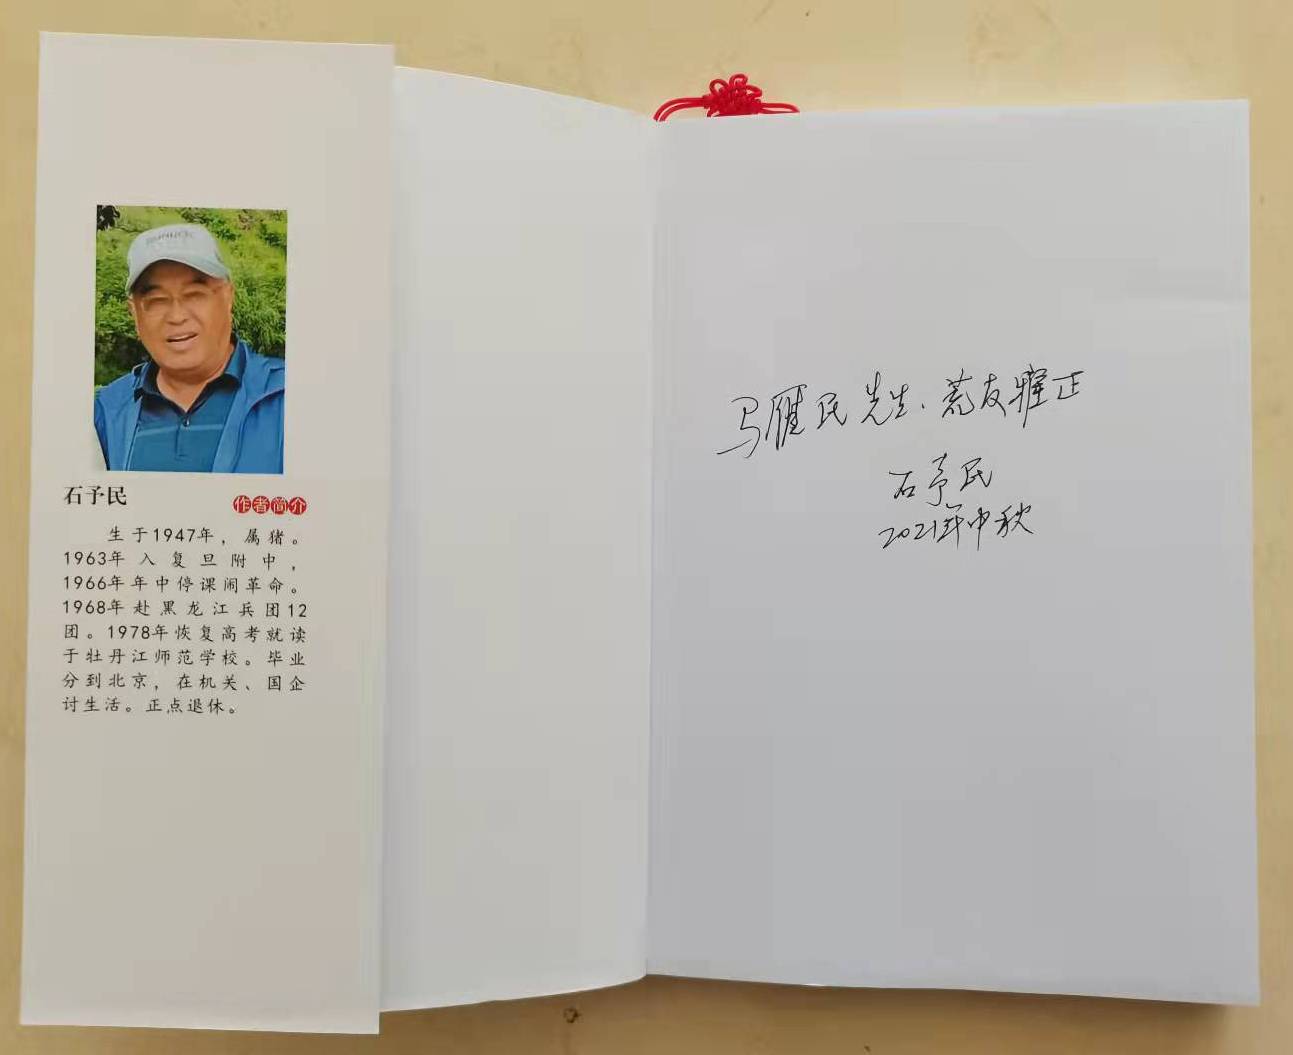 石予民
作者简介
生于1947年，属猪。
1963年入复旦附中，
1966年年中停课闹革命。
1968年赴黑龙江兵团12
团。1978年恢复高考就读
于牡丹江师范学校。毕业
分到北京，在机关、国企
讨生活。正点退休。
马雁民先生、荒友雅正
石予民
2021年中秋